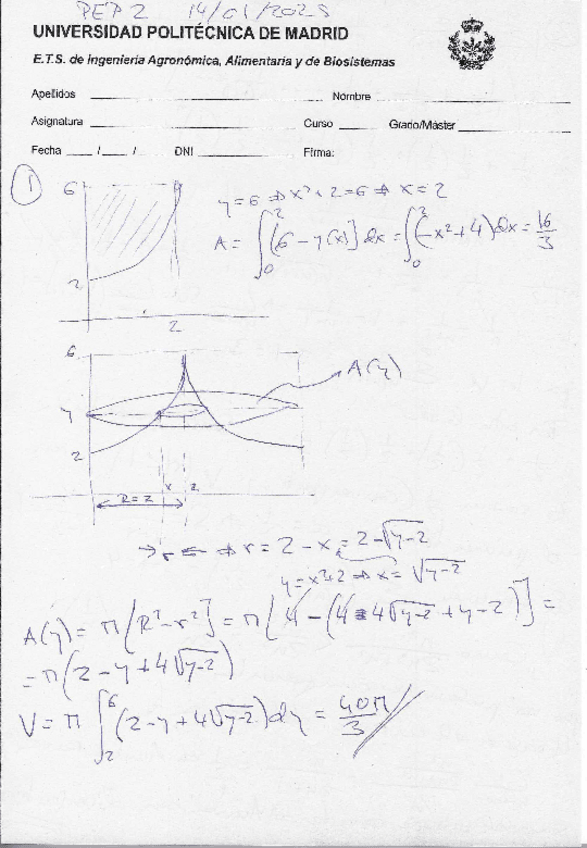 PEP 2 14/01/2025
UNIVERSIDAD POLITÉCNICA DE MADRID
E.T.S. de Ingeniería Agronómica, Alimentaria y de Biosistemas
Apellidos Nombre
Asignatura Curso Grado/Máster
Fecha / / DNI Firma:
1
6
y=6 ⇒ x²+2=6 ⇒ x=2
A = ∫₀² [6-y(x)] dx = ∫₀² (-x²+4) dx = 16/3
2
2
6
A(y)
y
2
x 2
R=2
→ r ← ⇒ r = 2-x = 2-√(y-2)
y=x²+2 ⇒ x=√(y-2)
A(y) = π[R²-r²] = π[4-(4-4√(y-2)+y-2)] =
= π(2-y+4√(y-2))
V = π ∫₂⁶ (2-y+4√(y-2)) dy = 40π/3 //